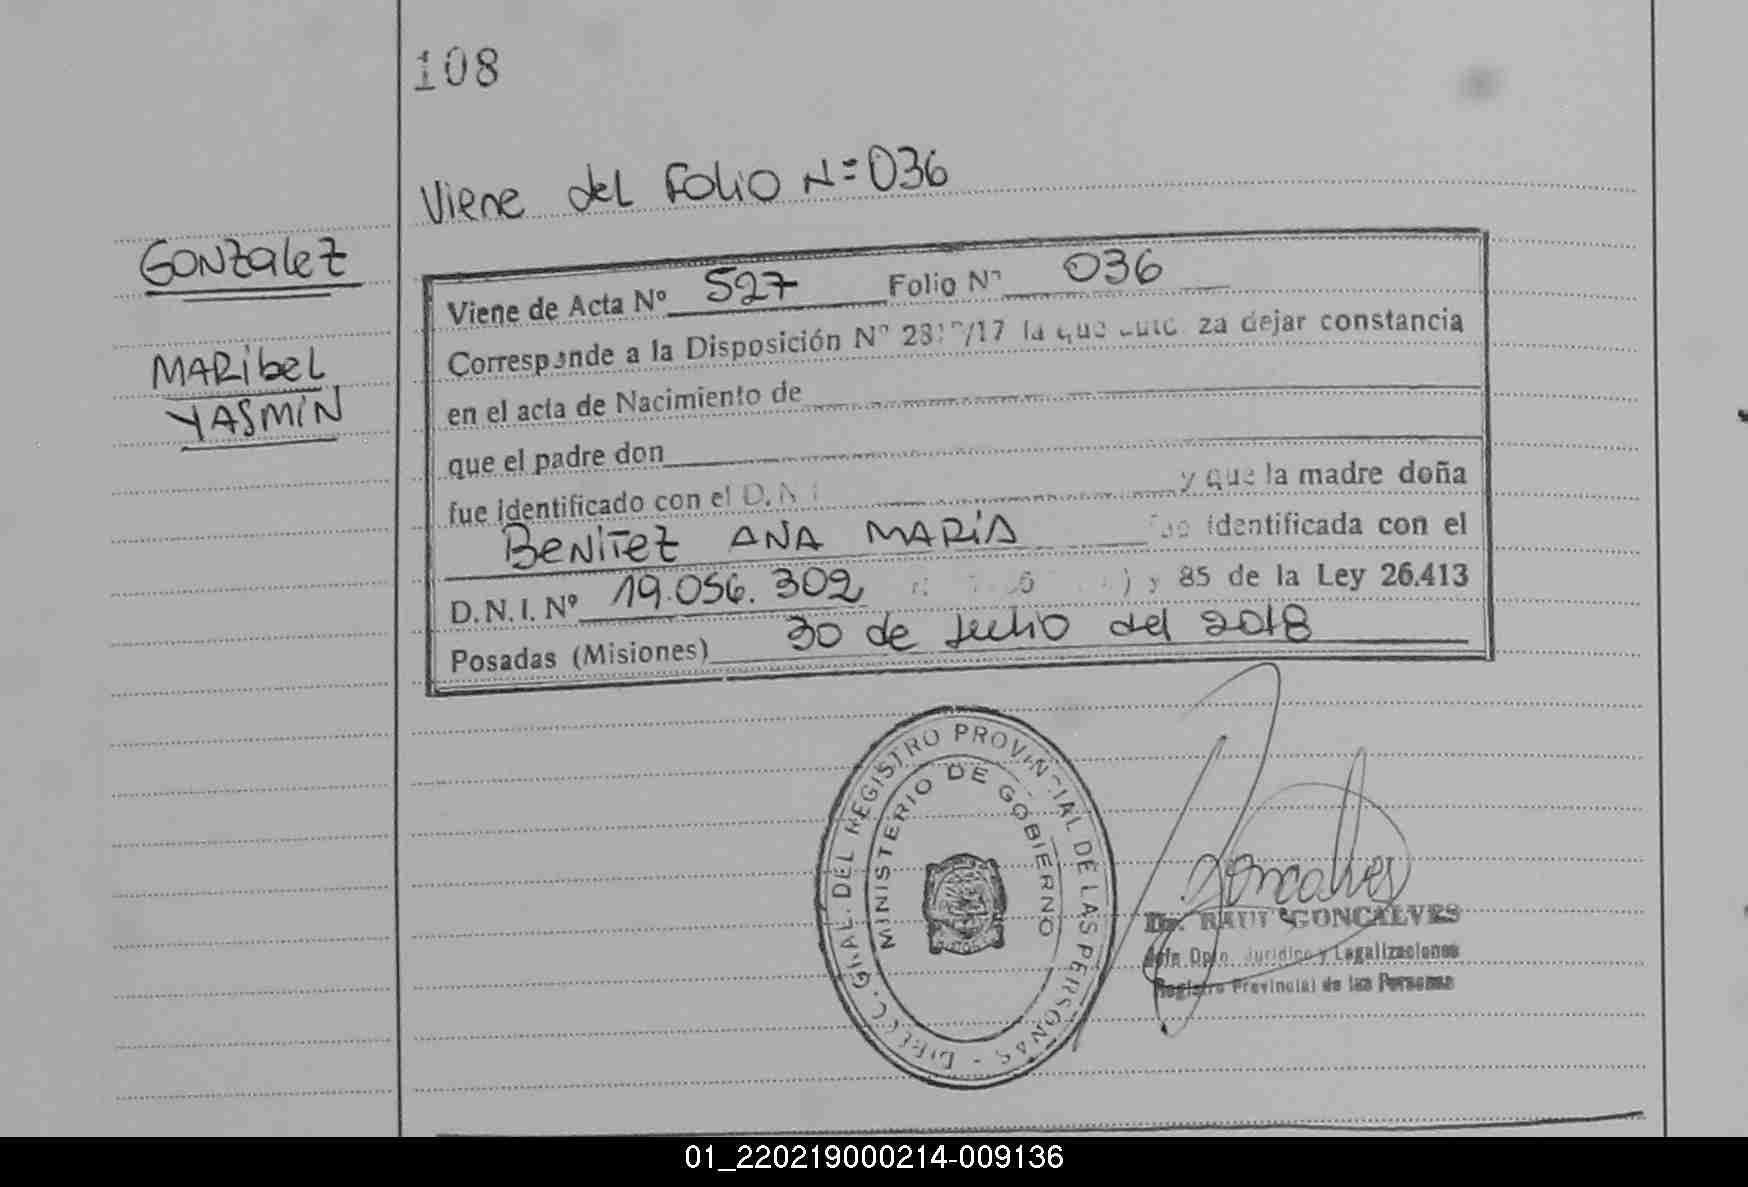 108
Viene del Folio N=036
GONZalez
MARibel
YASMIN
Viene de Acta Nº 527 Folio Nº 036
Corresponde a la Disposición Nº /17 la que za dejar constancia
en el acta de Nacimiento de
que el padre don
fue identificado con el D.N.I y que la madre doña
BeNITez ANA MARIA identificada con el
D.N.I. Nº 19.056.302 y 85 de la Ley 26.413
Posadas (Misiones) 30 de Julio del 2018
DIRECC. GRAL. DEL REGISTRO PROVINCIAL DE LAS PERSONAS -
MINISTERIO DE GOBIERNO
Goncalves
Dr. RAUL GONCALVES
Jefe Dpto. Jurídico y Legalizaciones
Registro Provincial de las Personas
01_220219000214-009136